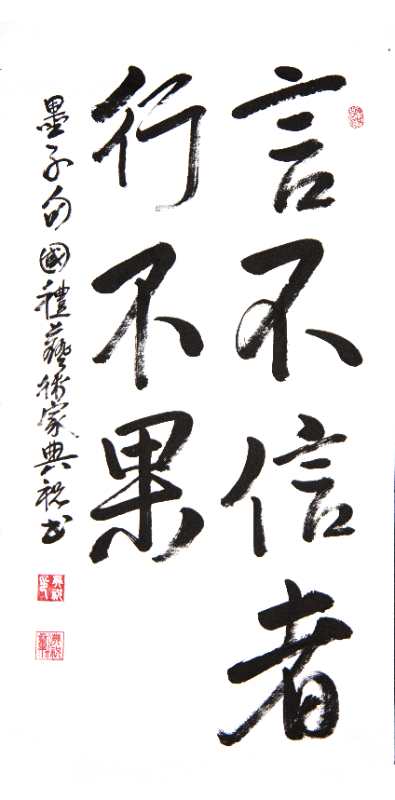 言不信者
行不果
墨子句國禮藝術家典祝书